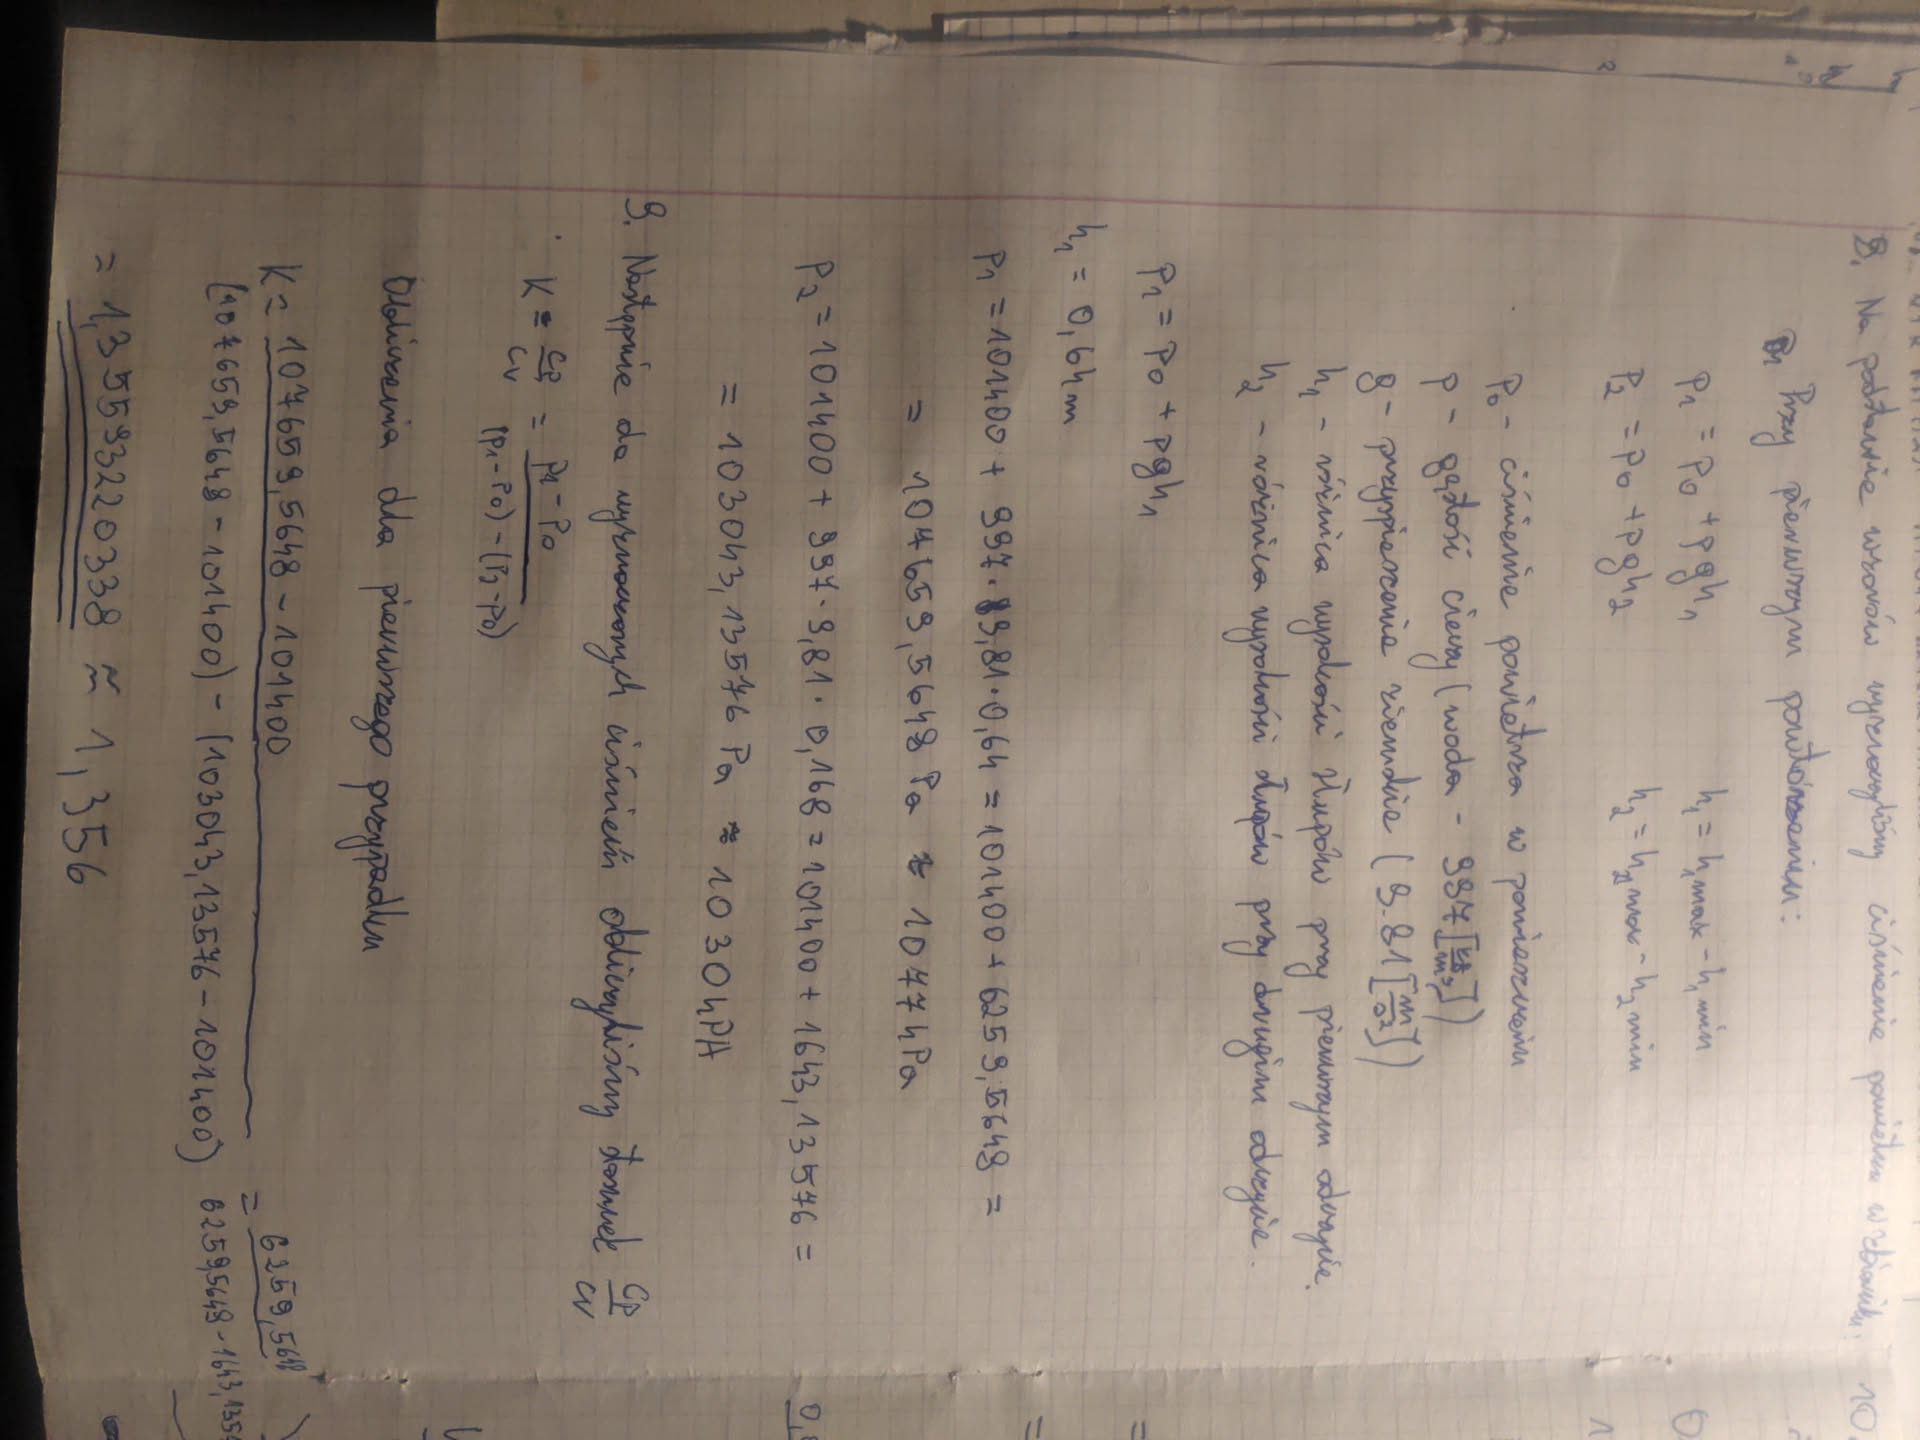 8. Na podstawie wzorów wyznaczyliśmy ciśnienie powietrza w zbiorniku.
Przy pierwszym powtórzeniu:
P1 = P0 + ρgh1 h1 = h1max - h1min
P2 = P0 + ρgh2 h2 = h2max - h2min
P0 - ciśnienie powietrza w pomieszczeniu
ρ - gęstość cieczy (woda - 997 [kg/m³])
g - przyspieszenie ziemskie (9.81 [m/s²])
h1 - różnica wysokości słupów przy pierwszym odczycie.
h2 - różnica wysokości słupów przy drugim odczycie.
P1 = P0 + ρgh1
h1 = 0,64m
P1 = 101400 + 997 · 9,81 · 0,64 = 101400 + 6259,5648 =
= 107659,5648 Pa ≈ 1077 hPa
P2 = 101400 + 997 · 9,81 · 0,168 = 101400 + 1643,13576 =
= 103043,13576 Pa ≈ 1030 hPA
9. Następnie do wyznaczonych ciśnień obliczyliśmy stosunek Cp/Cv
K = Cp/Cv = P1 - P0 / (P1 - P0) - (P2 - P0)
Obliczenia dla pierwszego przypadku
K = 107659,5648 - 101400 / (107659,5648 - 101400) - (103043,13576 - 101400) = 6259,5648 / 6259,5648 - 1643,135
= 1,355932220338 ≈ 1,356
10.